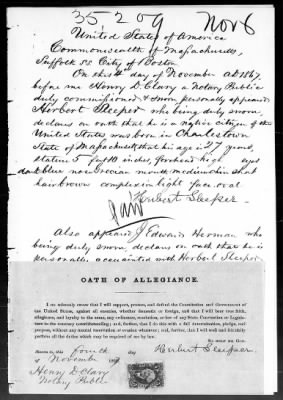 35209 Nov 6
United States of America
Commonwealth of Massachusetts,
Suffolk ss City of Boston
On this 4th day of November A.D. 1867,
before me Henry D. Clary a Notary Public
duly commissioned & sworn, personally appeared
Herbert Sleeper who being duly sworn,
declares on oath that he is a native citizen of the
United States, was born in Charlestown
State of Massachusetts that his age is 27 years,
stature 5 feet 10 inches, forehead high eyes
dark blue nose Grecian mouth medium chin short
hair brown complexion light face oval
Herbert Sleeper
Also appeared J. Edwards Herman who
being duly sworn, declares on oath that he is
personally acquainted with Herbert Sleeper
OATH OF ALLEGIANCE.
I do solemnly swear that I will support, protect, and defend the Constitution and Government of
the United States, against all enemies, whether domestic or foreign, and that I will bear true faith,
allegiance, and loyalty to the same, any ordinance, resolution, or law of any State Convention or Legislature
to the contrary notwithstanding; and, further, that I do this with a full determination, pledge, and
purpose, without any mental reservation or evasion whatsoever; and, further, that I will faithfully
perform all the duties which may be required of me by law.
SO HELP ME GOD.
Sworn to, this fourth day Herbert Sleeper.
of November 1867
Henry D Clary
Notary Public